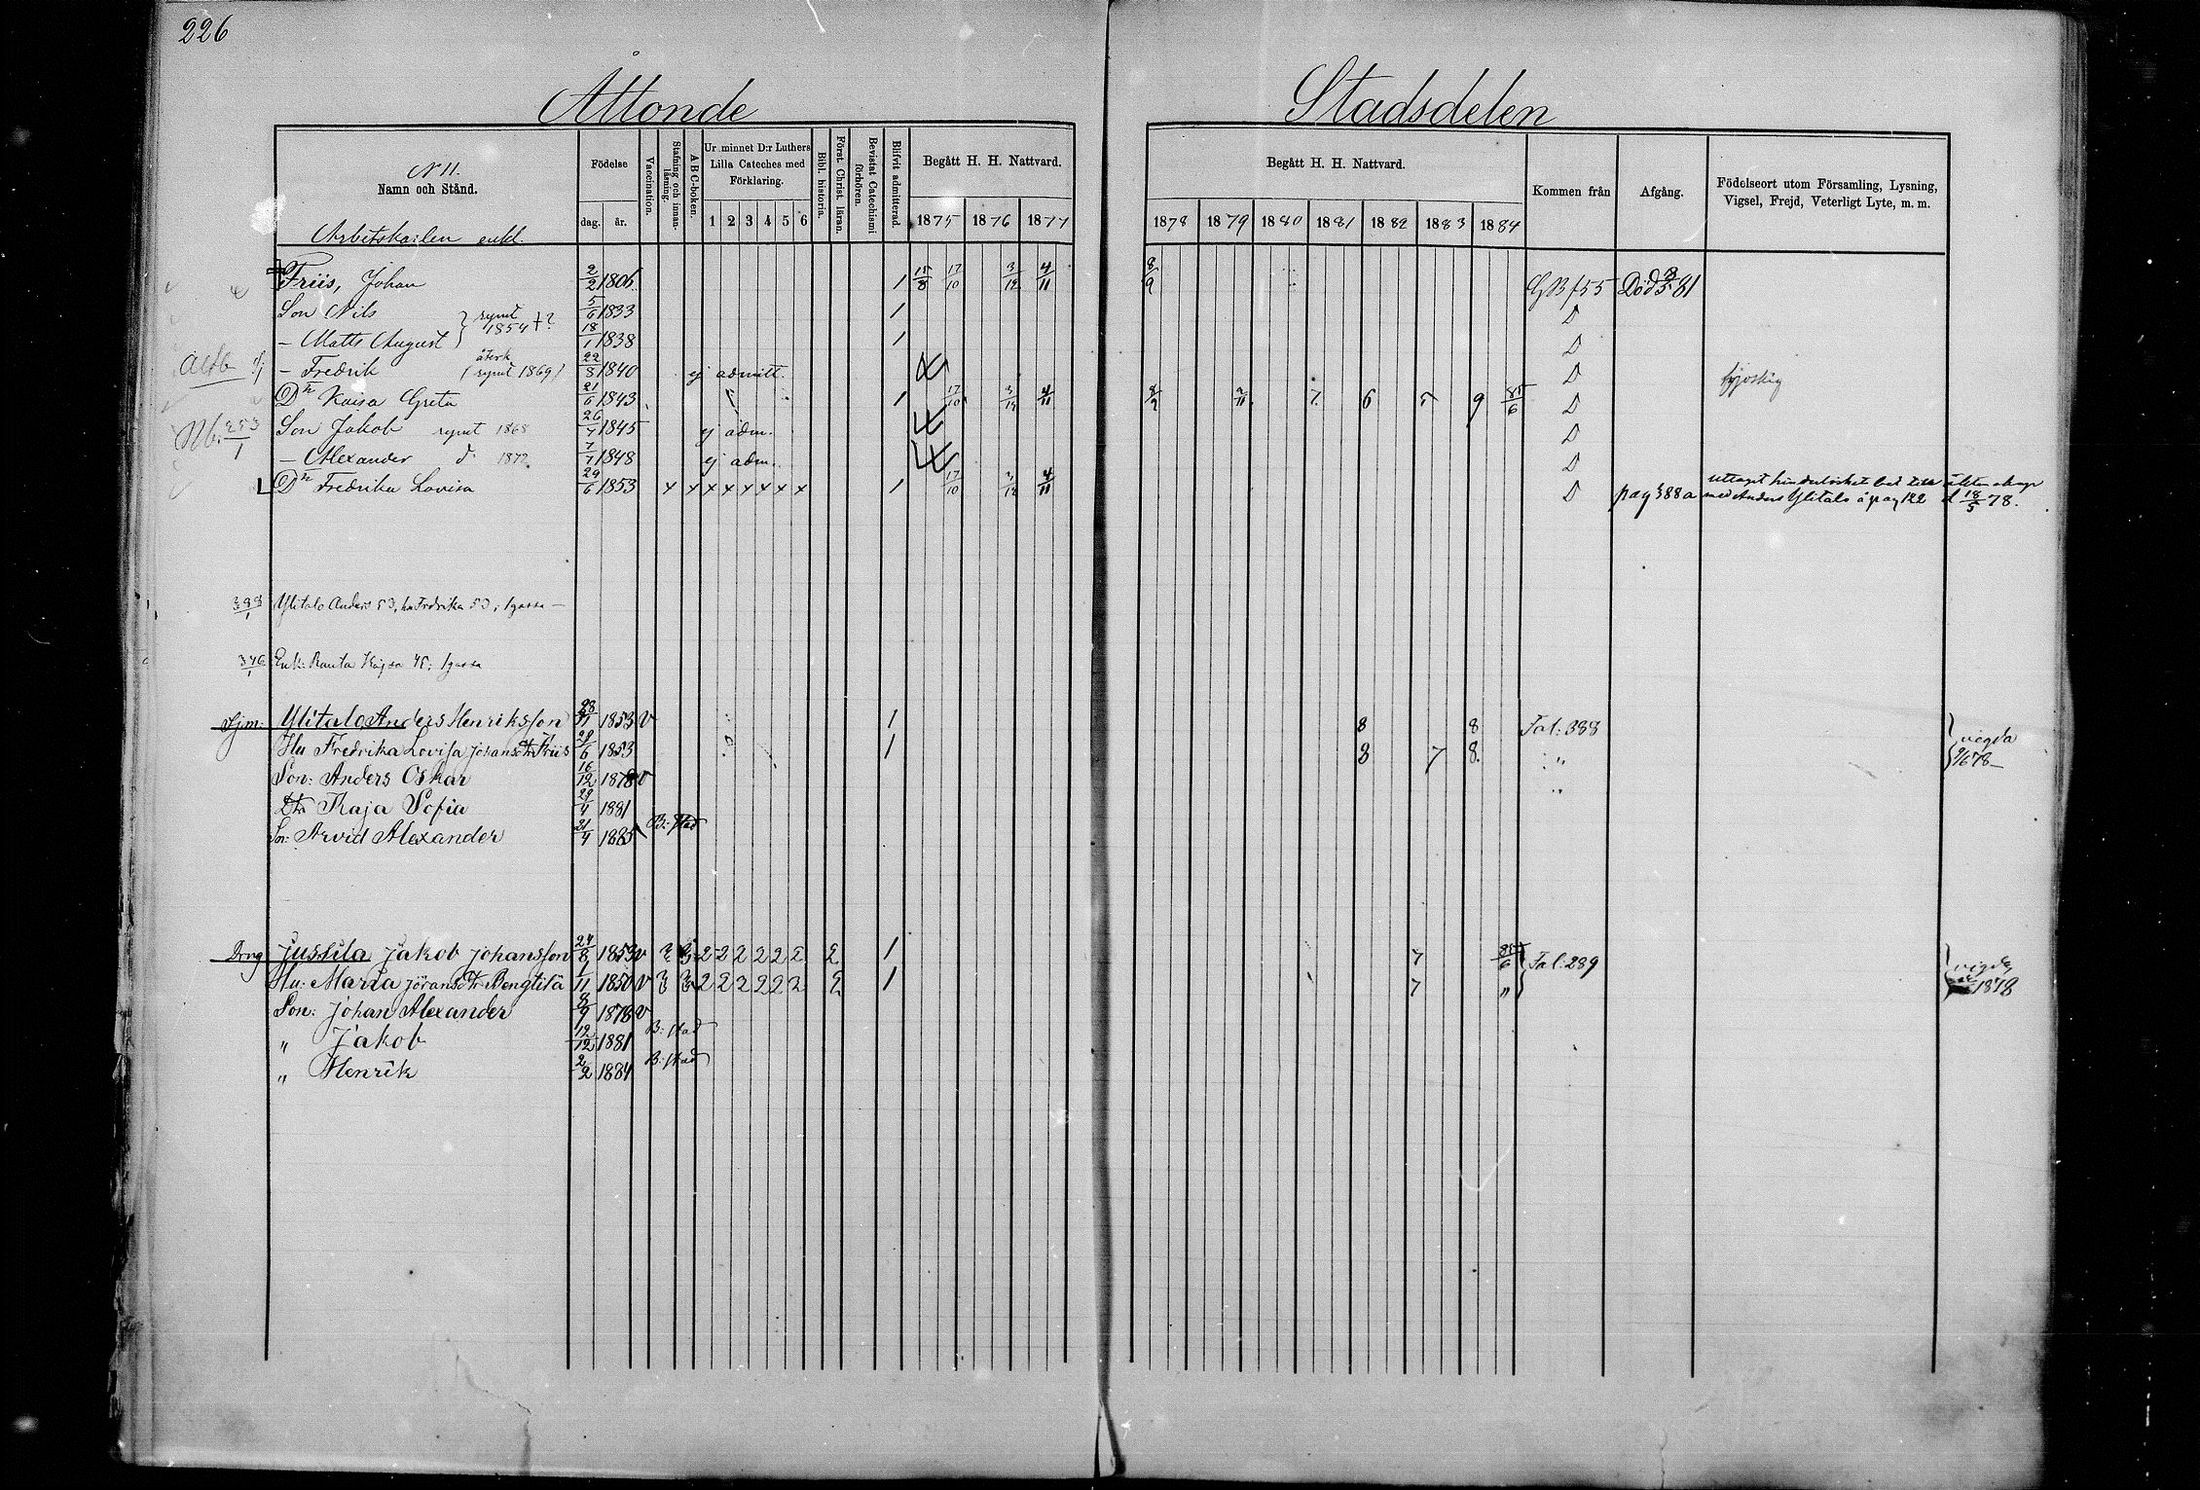 226
Åttonde Stadsdelen
N 11.
Namn och Stånd.
Födelse
dag. år.
Vaccination.
Stafning och innanläsning.
A B C-boken.
Ur minnet D:r Luthers Lilla Cateches med Förklaring.
1 2 3 4 5 6
Bibl. historia.
Först. Christ. läran.
Bevistat Catechismi förhören.
Blifvit admitterad.
Begått H. H. Nattvard.
1875 1876 1877
Begått H. H. Nattvard.
1878 1879 1880 1881 1882 1883 1884
Kommen från
Afgång.
Födelseort utom Församling, Lysning, Vigsel, Frejd, Veterligt Lyte, m. m.
Arbetskarlen enkl.
Friis, Johan 2/2 1806 1 15/8 17/10 3/12 4/11 8/9 GB f55 Död 81
Son Nils 5/6 1833 1 D
rymt 1854 +?
- Matts August 18/1 1838 1 D
- Fredrik (återk rymt 1869) 22/8 1840 ej admitt. D
Dtr Kaisa Greta 21/6 1843 1 17/10 3/12 4/11 8/9 2/11 7. 6 5 9 85/6 D
Son Jakob rymt 1868 26/7 1845 ej adm. D
- Alexander d: 1872 7/7 1848 ej adm. D
Dtr Fredrika Lovisa 29/6 1853 x x x x x x x x 1 17/10 3/12 4/11 D pag 388a
med Anders Ylitalo å pag 122 d 18/5 78.
388/1 Ylitalo Anders 53, hu Fredrika 53, i gassa -
346/1 Enk: Ranta Kajsa 45; i gassa
Sjm: Ylitalo, Anders Henriksson 28/11 1853 v 1 8 8 Fal: 388
Hu Fredrika Lovisa Johansdtr Friis 29/6 1853 1 8 7 8. " vigda 9/6 78
Son: Anders Oskar 16/12 1878 v "
Dtr Kaja Sofia 29/4 1881
Son: Arvid Alexander 21/4 1885 B: stad
Drng Jussila Jakob Johansson 24/8 1853 v 3 3 2 2 2 2 2 2 2 1 7 85/6 Fal: 289
Hu: Maria Jöransdtr Bengtilä 1/11 1850 v 3 3 2 2 2 2 2 2 2 1 7 " vigda 1878
Son: Johan Alexander 8/9 1878 v
" Jakob 12/12 1881 B: stad
" Henrik 2/2 1884 B: stad